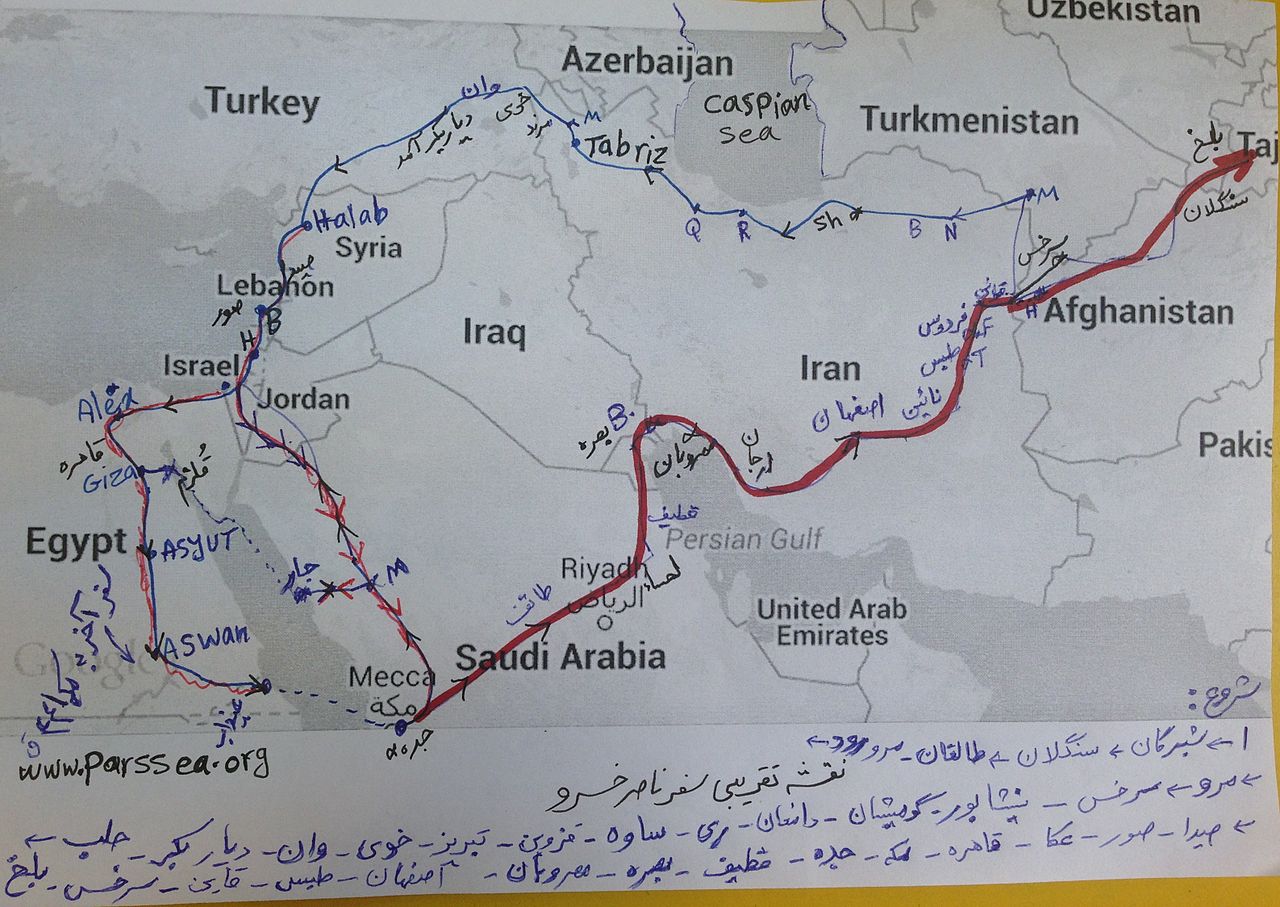 Uzbekistan
Azerbaijan
caspian
sea
Turkey
وان
خوی
مرند
M
دیاربکر آمد
Tabriz
Turkmenistan
بلخ
Taj
سنگلان
Halab
Syria
Q
R
sh
B
N
M
سرخس
صیدا
Lebanon
صور
B
H
قائن
H
Afghanistan
فردوس
F
طبس
T
Iraq
Iran
Israel
Jordan
Alex
قاهره
Giza
قلزم
بصره
B.
مهروبان
ارجان
اصفهان
نائین
Pakis
Egypt
ASYUT
قطیف
Persian Gulf
جار
M
Riyadh
الرياض
لحساء
طائف
United Arab
Emirates
ASWAN
Google
سفر آخر به
Mecca
مكة
Saudi Arabia
عیذاب
جده
www.Parssea.org
شروع :
۱← شبرگان ← سنگلان ← طالقان - مرورود←
نقشه تقریبی سفر ناصرخسرو
← مرو ← سرخس - نیشابور - گومیشان - دامغان - ری - ساوه - قزوین - تبریز - خوی - وان - دیار بکر - حلب ←
← صیدا - صور - عکا - قاهره - مکه - جده - قطیف - بصره - مهروبان - اصفهان - طبس - قاین - سرخس - بلخ